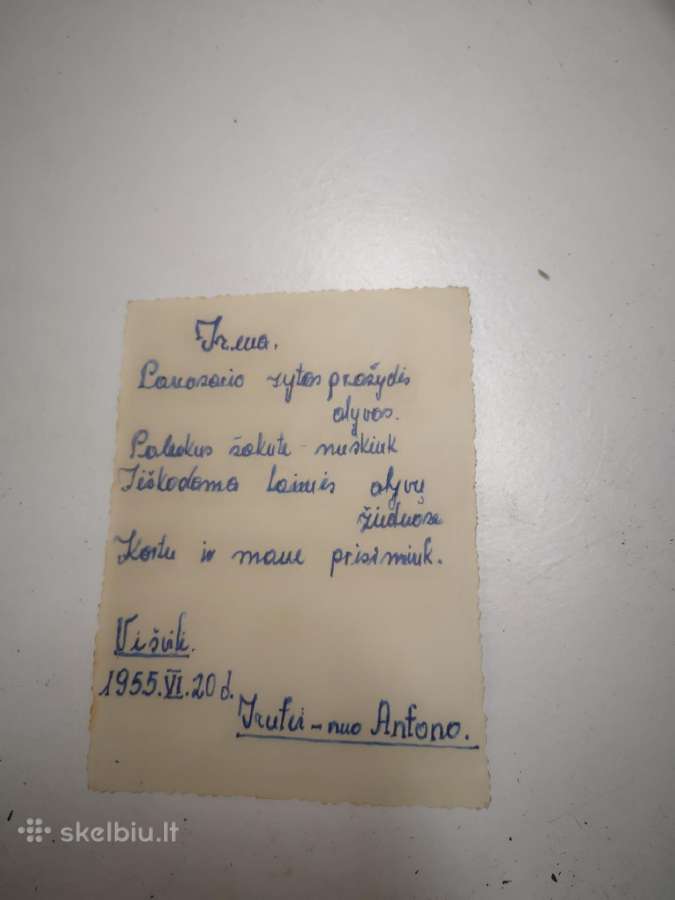 Irena.
Pavasario rytas pražydis
alyvas.
Palinkus šakutę - nuskink
Ieškodama laimės alyvų
žieduose
Kartu ir mane prisimink.
1955.VI.20 d.
Irutei - nuo Antano.
skelbiu.lt